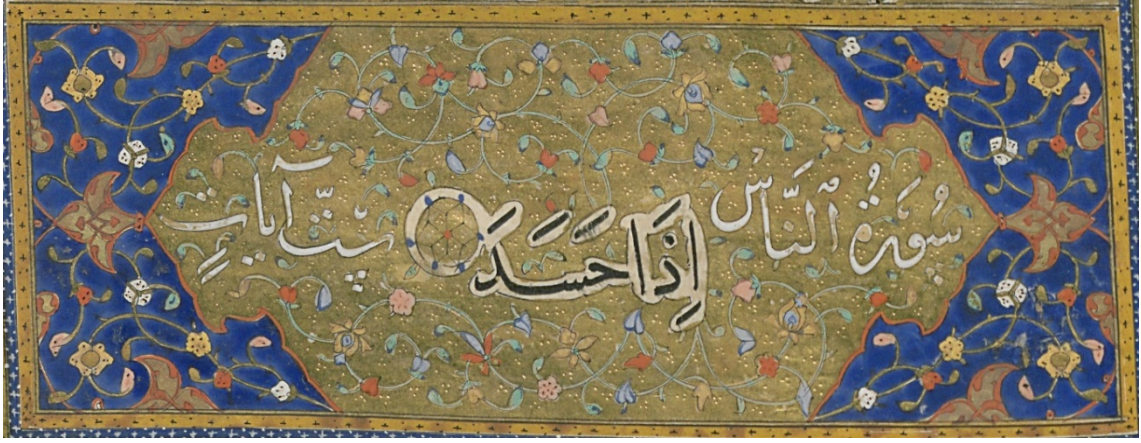 سُورَةُ ٱلنَّاسُ إِذَا حَسَدَ سِتُّ آيَاتٍ